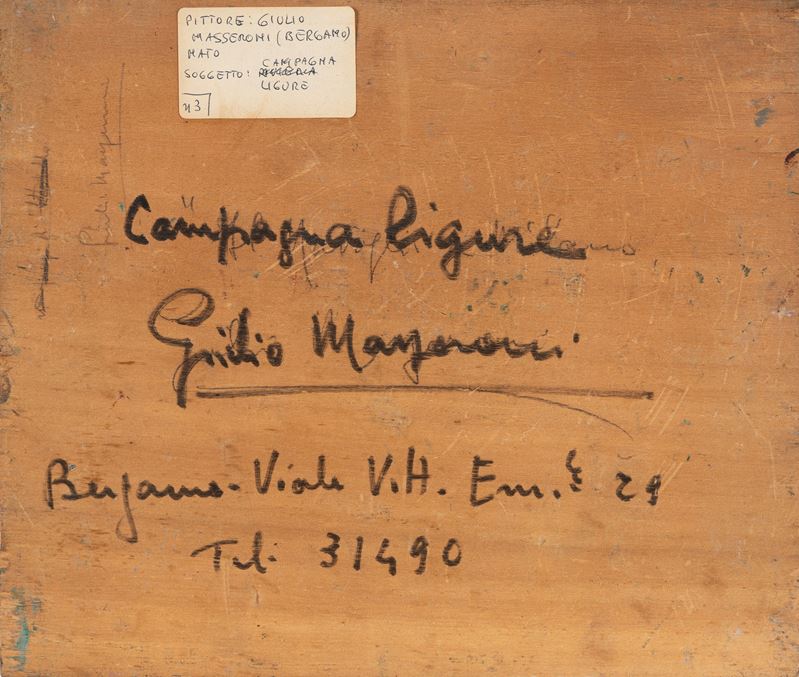 PITTORE: GIULIO
MASSERONI (BERGAMO)
NATO
SOGGETTO: CAMPAGNA
LIGURE
n 3
Campagna Ligure
Giulio Masseroni
Bergamo - Viale Vitt. Em. 29
Tel. 31490